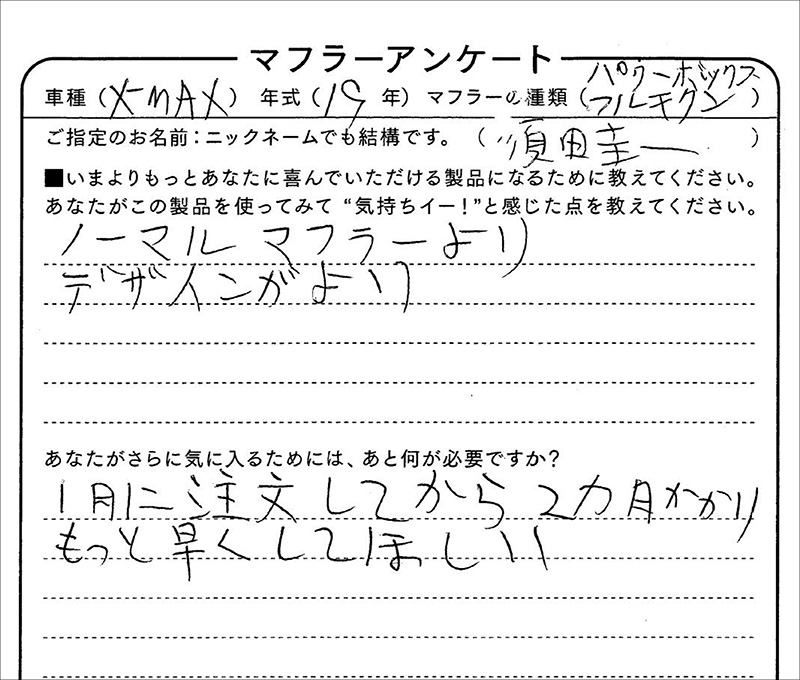 マフラーアンケート
車種（X-MAX） 年式（19年）マフラーの種類（パワーボックスフルモクン）
ご指定のお名前：ニックネームでも結構です。（須田圭一）
■いまよりもっとあなたに喜んでいただける製品になるために教えてください。
あなたがこの製品を使ってみて“気持ちイー！”と感じた点を教えてください。
ノーマルマフラーより
デザインがよい
あなたがさらに気に入るためには、あと何が必要ですか?
1月に注文してから2カ月かかり
もっと早くしてほしい